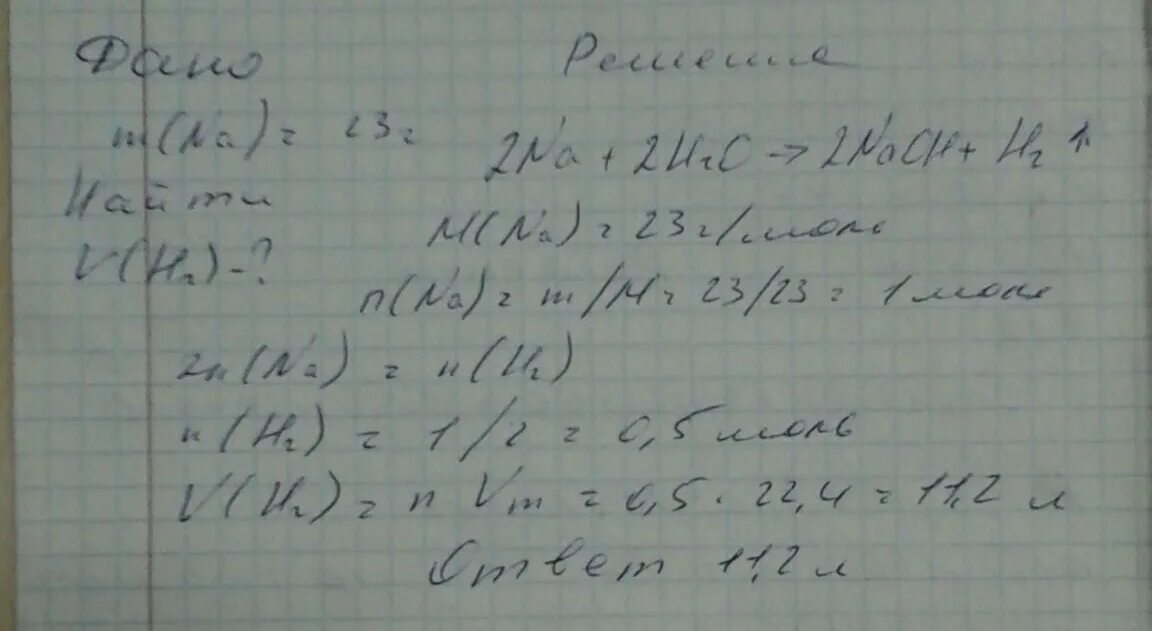 Дано
Решение
m(Na) = 23 г
2Na + 2H₂O → 2NaOH + H₂ ↑
Найти
M(Na) = 23 г/моль
V(H₂) - ?
n(Na) = m/M = 23/23 = 1 моль
2n(Na) = n(H₂)
n(H₂) = 1/2 = 0,5 моль
V(H₂) = n Vm = 0,5 · 22,4 = 11,2 л
Ответ 11,2 л